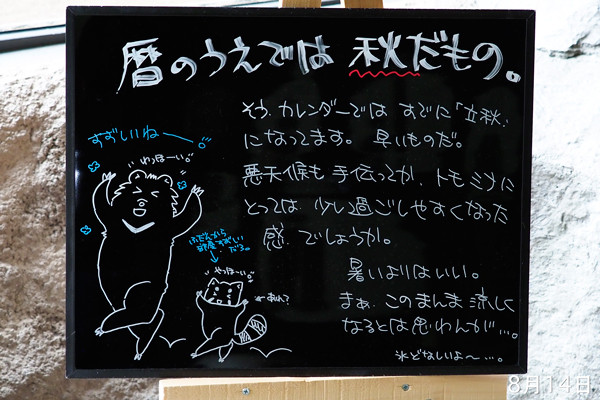 暦のうえでは 秋だもの。
そう、カレンダーでは すでに「立秋」
になってます。 早いものだ。
悪天候も 手伝ってか、トモミナに
とっては 少し過ごしやすくなった
感、でしょうか。
暑いよりはいい。
まぁ、このまんま涼しく
なるとは思わんが…。
すずしいねー。
わっほーい。
ふだんから
部屋すずしい
だろ。
やっほーい。
←あれ?
8月14日